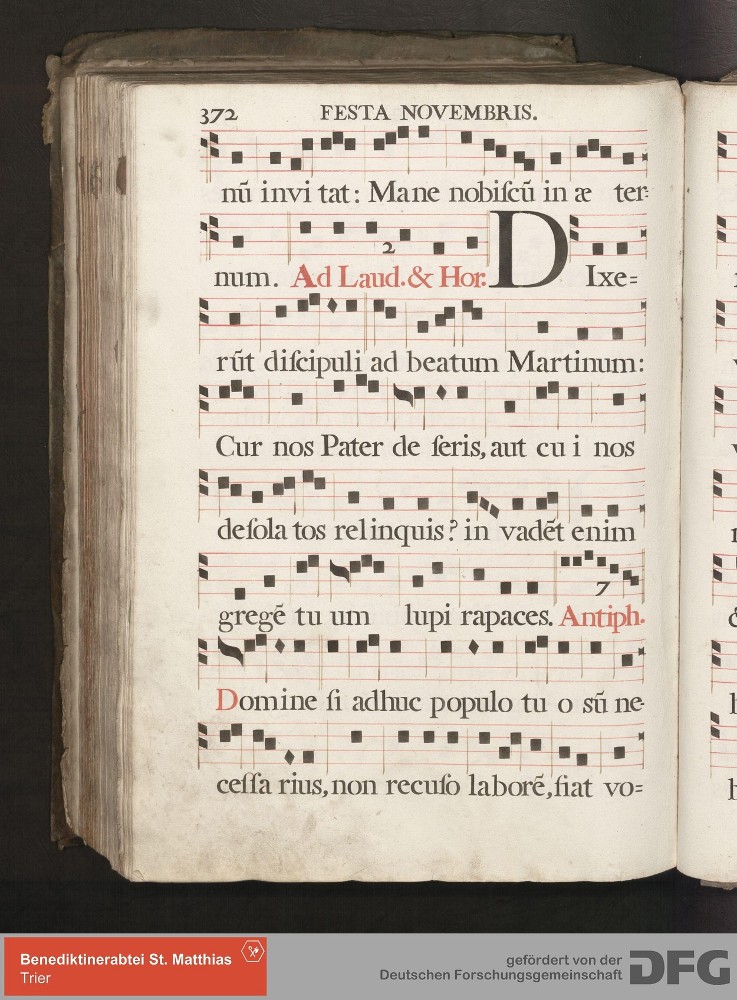 372 FESTA NOVEMBRIS.
nū invi tat: Mane nobiſcū in æ ter=
2
num. Ad Laud. & Hor. D Ixe=
rūt diſcipuli ad beatum Martinum:
Cur nos Pater de ſeris, aut cu i nos
deſola tos relinquis? in vadēt enim
7
gregē tu um lupi rapaces. Antiph.
Domine ſi adhuc populo tu o sū ne-
ceſſa rius, non recuſo laborē, fiat vo=
Benediktinerabtei St. Matthias
Trier
gefördert von der
Deutschen Forschungsgemeinschaft
DFG